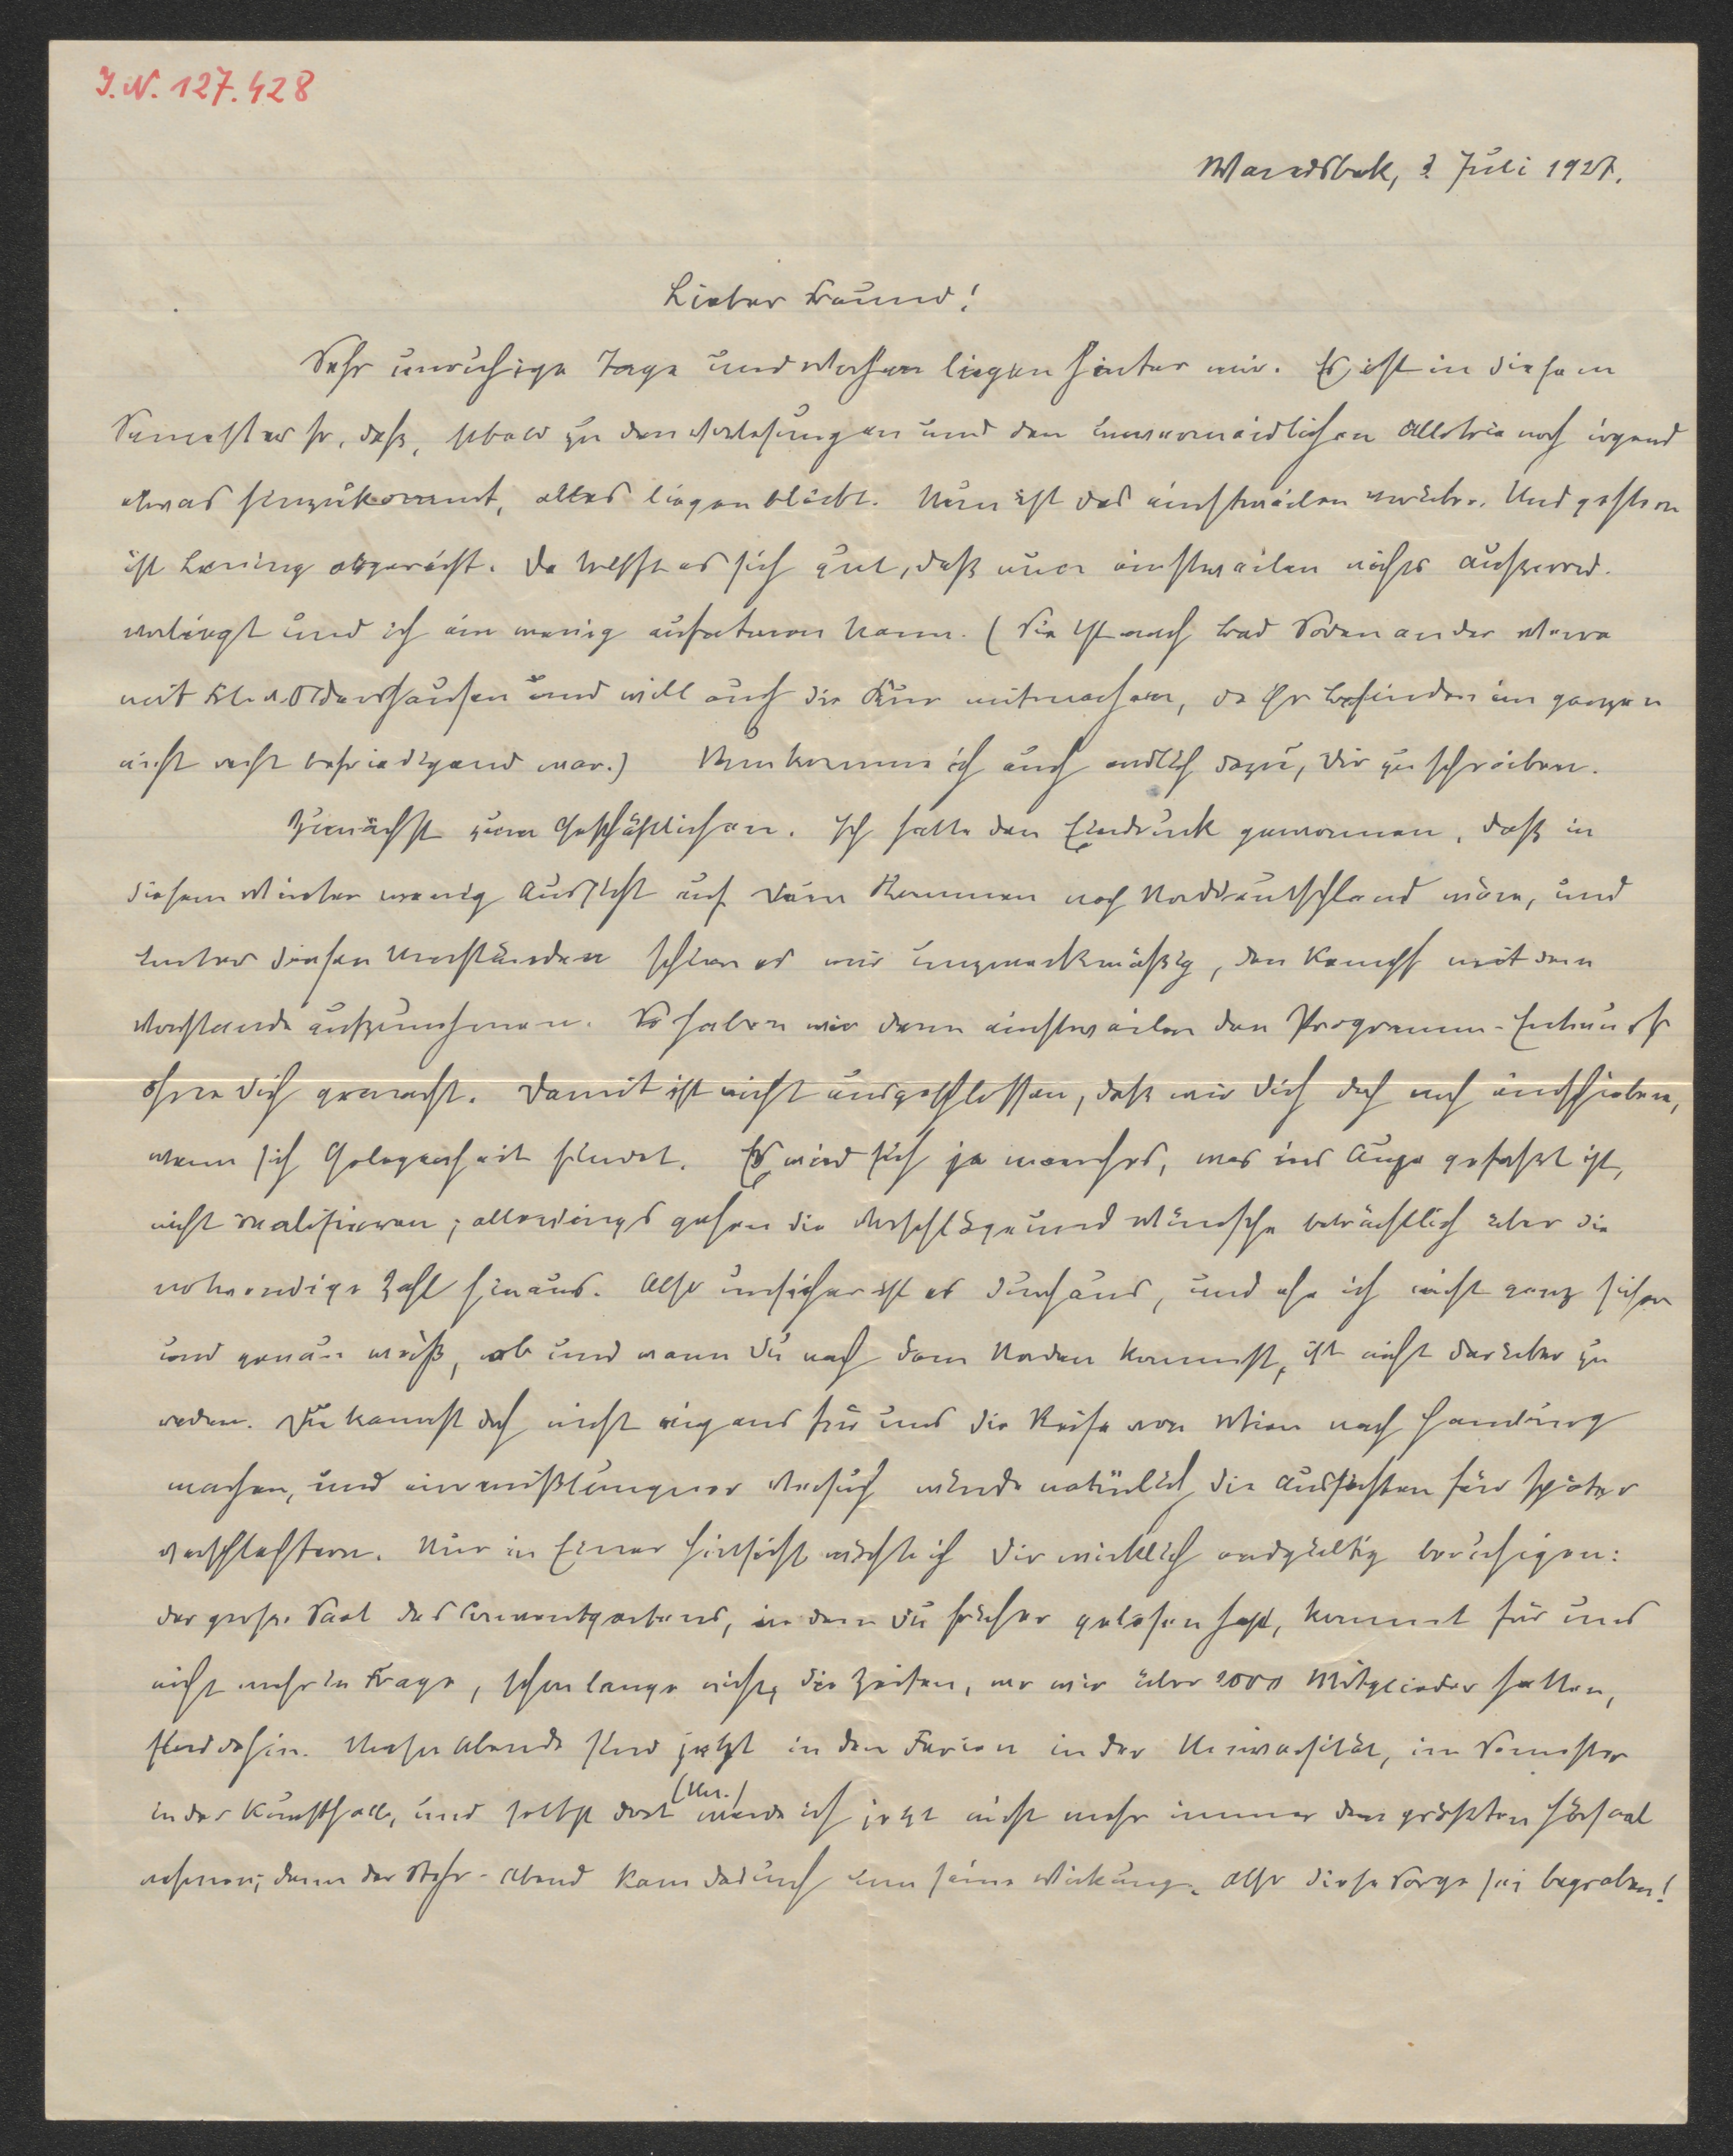 I. N. 127.428
Wandsbek, 3. Juli 1927.
Lieber Freund!
Sehr unruhige Tage und Wochen liegen hinter mir. Es ist in diesem
Semester so, daß, sobald zu den Vorlesungen und den unvermeidlichen Allotria noch irgend
etwas hinzukommt, alles liegen bleibt. Nun ist das einstweilen vorüber. Und gestern
ist abgereist. Da trifft es sich gut, daß nun einstweilen nichts außerord.
vorliegt und ich ein wenig aufatmen kann. (Sie ist nach Bad Soden an der Werra
mit Frl. v. Oldershausen und will auch die Kur mitmachen, da ihr Befinden im ganzen
nicht recht befriedigend war.) Nun komme ich auch endlich dazu, Dir zu schreiben.
Zunächst zum Geschäftlichen. Ich hatte den Eindruck gewonnen, daß in
diesem Winter wenig Aussicht auf Dein Kommen nach Norddeutschland wäre, und
unter diesen Umständen schien es mir unzweckmäßig, den Kampf mit dem
Vorstande aufzunehmen. So haben wir denn einstweilen den Programm-Entwurf
ohne Dich gemacht. Damit ist nicht ausgeschlossen, daß wir Dich doch noch einschieben,
wenn sich Gelegenheit findet. Es wird sich ja manches, was ins Auge gefaßt ist,
nicht realisieren; allerdings gehen die Vorschläge und Wünsche beträchtlich über die
notwendige Zahl hinaus. Also unsicher ist es durchaus, und ehe ich nicht ganz sicher
und genau weiß, ob und wann Du nach dem Norden kommst, ist nicht darüber zu
reden. Du kannst doch nicht eigens für uns die Reise von Wien nach Hamburg
machen, und ein mißlungener Versuch würde natürlich die Aussichten für später
verschlechtern. Nur in Einer Hinsicht möchte ich Dir wirklich endgültig beruhigen:
der große Saal des Conventgartens, in dem Du früher gelesen hast, kommt für uns
nicht mehr in Frage, schon lange nicht; die Zeiten, wo wir über 2000 Mitglieder hatten,
sind dahin. Unsere Abende sind jetzt in den Ferien in der Universität, im Semester
in der Kunsthalle, und selbst dort (Un.) werde ich jetzt nicht mehr immer den größten Hörsaal
nehmen; denn der Stehr-Abend kam dadurch um seine Wirkung. Also diese Sorge sei begraben!